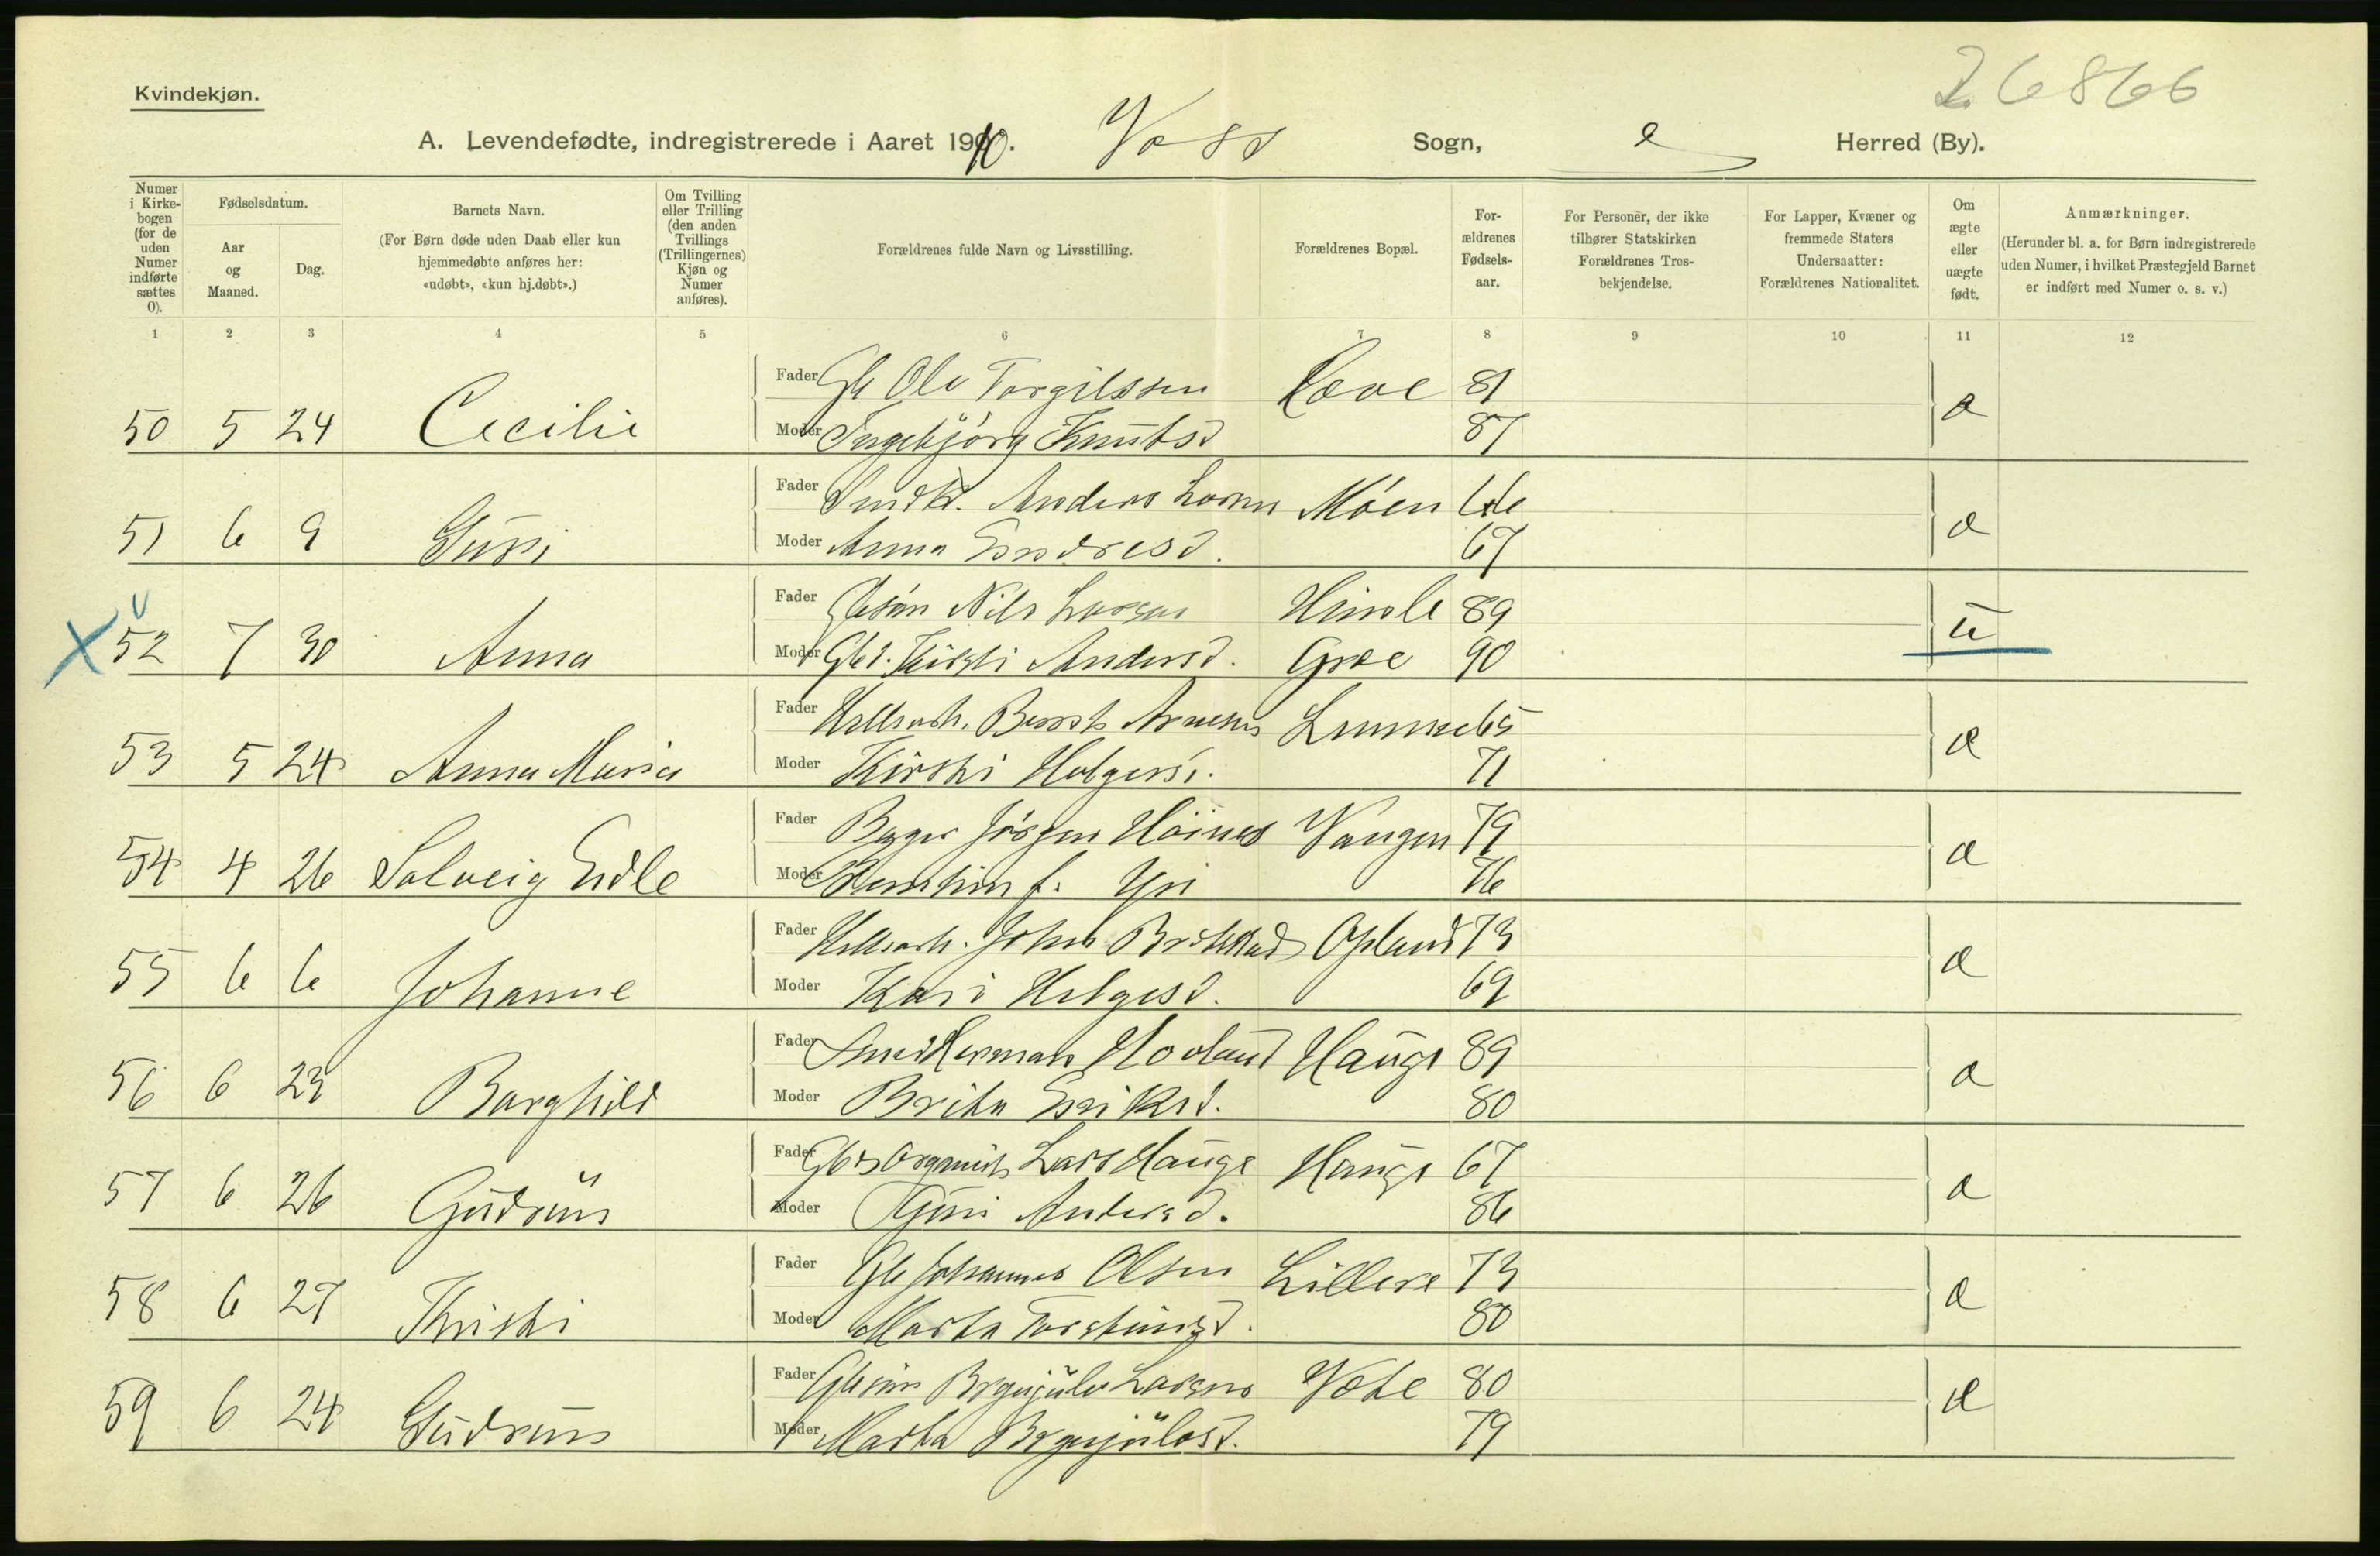 Kvindekjøn.
26866
A. Levendefødte, indregistrerede i Aaret 1910. Voss Sogn, Herred (By).
Numer i Kirke-bogen (for de uden Numer indførte sættes 0).
Fødselsdatum.
Aar og Maaned.
Dag.
Barnets Navn.
(For Børn døde uden Daab eller kun hjemmedøbte anføres her: «udøbt», «kun hj.døbt».)
Om Tvilling eller Trilling (den anden Tvillings (Trillingernes) Kjøn og Numer anføres).
Forældrenes fulde Navn og Livsstilling.
Forældrenes Bopæl.
For-ældrenes Fødsels-aar.
For Personer, der ikke tilhører Statskirken Forældrenes Tros-bekjendelse.
For Lapper, Kvæner og fremmede Staters Undersaatter: Forældrenes Nationalitet.
Om ægte eller uægte født.
Anmærkninger.
(Herunder bl. a. for Børn indregistrerede uden Numer, i hvilket Præstegjeld Barnet er indført med Numer o. s. v.)
1 2 3 4 5 6 7 8 9 10 11 12
Fader Gb Ole Torgilssen 81
50 5 24 Cecilie Moder Ingebjörg Knutsd 87 æ
Fader Anders Larsen Möen 66
51 6 9 Guri Moder Anna Endresd. 67 æ
Fader Gbsön Nils Larsen Himle 89
52 7 30 Anna Moder Gbd. Kirsti Andersd. Græe 90 u
Fader Berst Arnesen 65
53 5 24 Anna Maria Moder Kirsti Holgersd. 71 æ
Fader Bager Jörgen Höines Vangen 79
54 4 26 Solveig Edle Moder f. 76 æ
Fader John Opland 73
55 6 6 Johanne Moder Kari Helgesd. 69 æ
Fader Smed Herman Hovland Hauge 89
56 6 23 Borghild Moder Brita Eriksd. 80 æ
Fader Gbr Organist Lars Hauge Hauge 67
57 6 26 Gudrun Moder Guri Andersd. 86 æ
Fader Gb Johannes Olsen Lillere 73
58 6 27 Kristi Moder Marta Torsteinsd. 80 æ
Fader Gbsön Brynjulv Larsen Væte 80
59 6 24 Gudrun Moder Martha Brynjulvsd. 79 æ